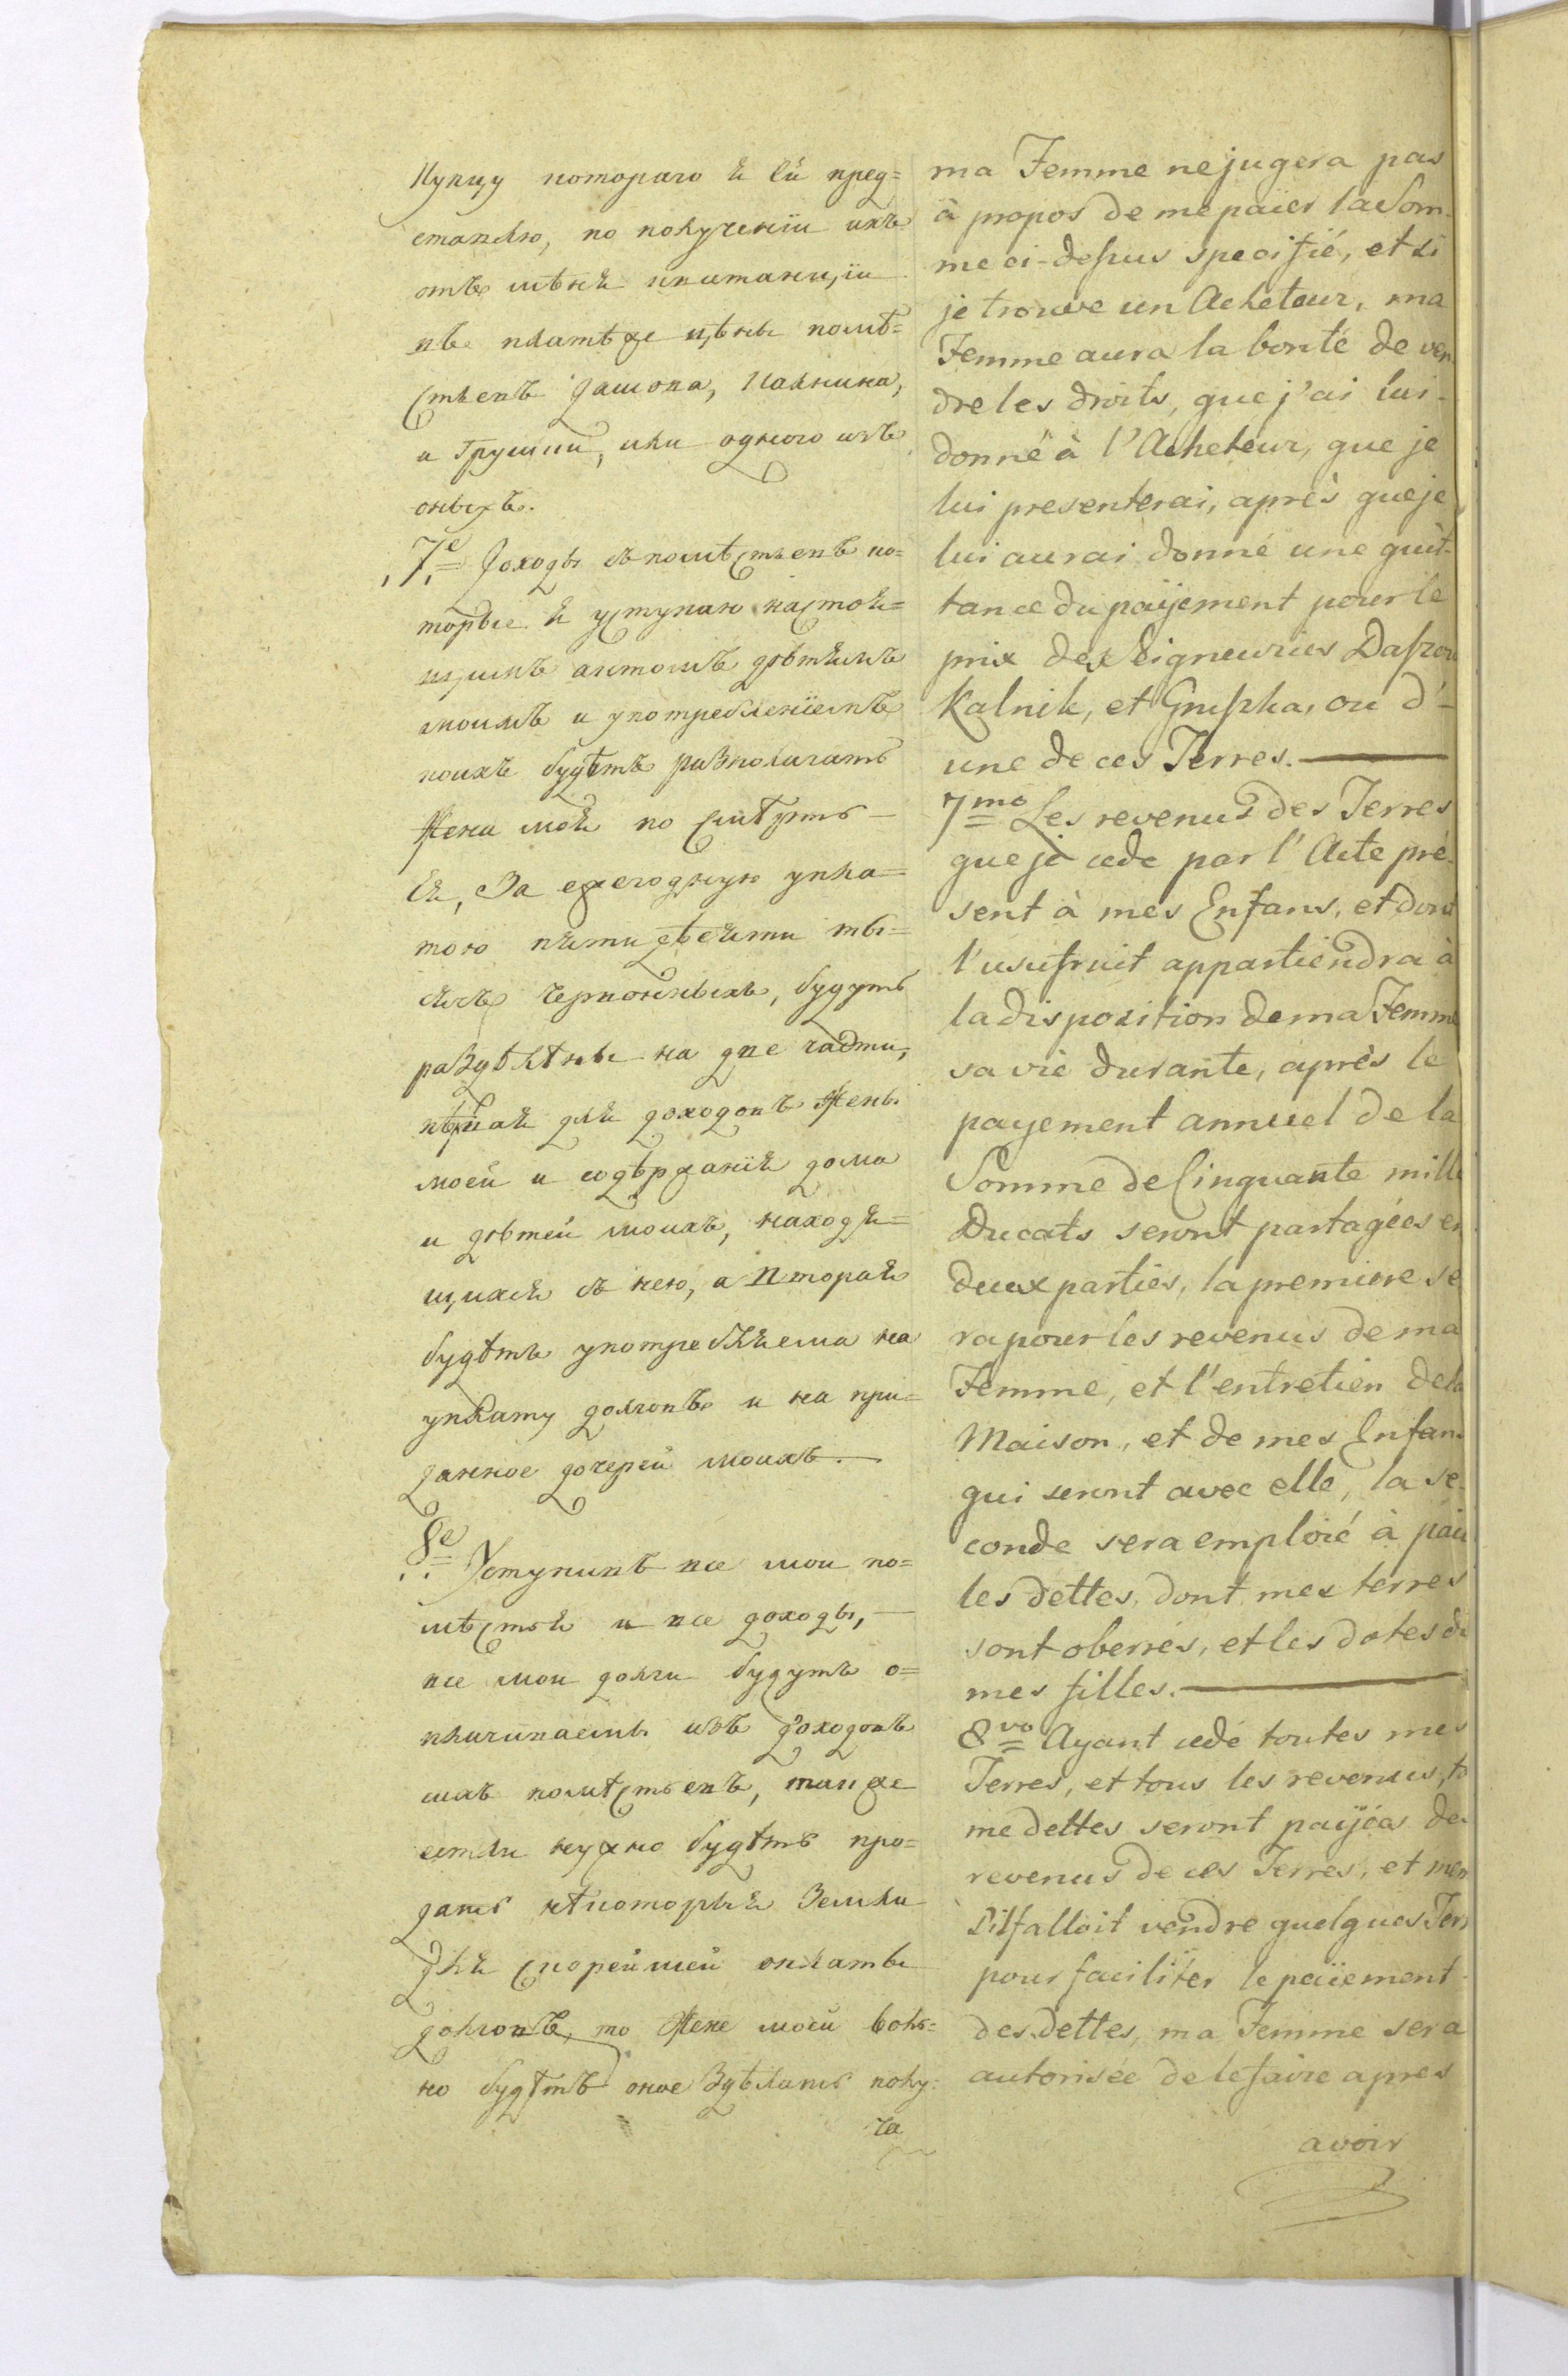 купцу котораго я ей пред=
ставлю, по полученïи имъ
отъ меня квитанцïи
въ платеже цѣны помѣ=
стьевъ Дашова, Кальника,
и Грушки, или одного изъ
оныхъ.
7е Доходы съ помѣстьевъ ко=
торые я уступаю настоя=
щимъ актомъ дѣтямъ
моимъ и употребленïемъ
коихъ будетъ располагать
жена моя по смерть
Ея, За ежегодную упла=
тою пятидесяти ты=
сячь червонныхъ, будутъ
раздѣлены на две части,
первая для доходовъ жены
моей и содержанïя дома
и дѣтей моихъ, находя=
щихся съ нею, а вторая
будетъ употребляема на
уплату долговъ и на при=
данное дочерей моихъ.
8е Уступивъ все мои по=
мѣстья и все доходы,
все мои долги будутъ о=
плачиваемы изъ доходовъ
ихъ помѣстьевъ, также
естли нужно будетъ про=
дать некоторыя Земли
для скорейшей оплаты
долговъ, то жене моей воль=
но будетъ оное Здѣлать полу=
ча
ma Femme ne jugera pas
à propos de me païer la Som-
me ci-dessus specifié, et si
je trouve un Acheteur, ma
Femme aura la bonté de ven
dre les droits, que j'ai lui-
donné à l'Acheteur, que je
lui presenterai, après que je
lui aurai donné une quit-
tance du païjement pour le
prix des Seigneuries Daszow
Kalnik, et Gruszka, ou d'-
une de ces Terres.
7mo Les revenus des Terres
que je cede par l'Acte pré-
sent à mes Enfans, et dont
l'usufruit appartiendra à
la disposition de ma Femme
sa vie durante, après le
payement annuel de la
Somme de Cinquante mille
Ducats seront partagées en
deux parties, la premiere se
ra pour les revenus de ma
Femme, et l'entretien de la
Maison, et de mes Enfans
qui seront avec elle, la se-
conde sera emploié à païe
les dettes, dont mes terres
sont oberrés, et les dotes de
mes filles.
8vo Ayant cedé toutes mes
Terres, et tous les revenus, to
me dettes seront païjées de
revenus de ces Terres, et mem
S'il falloit vendre quelques Terr
pour faciliter le païement
des dettes, ma Femme sera
autorisée de le faire apres
avoir